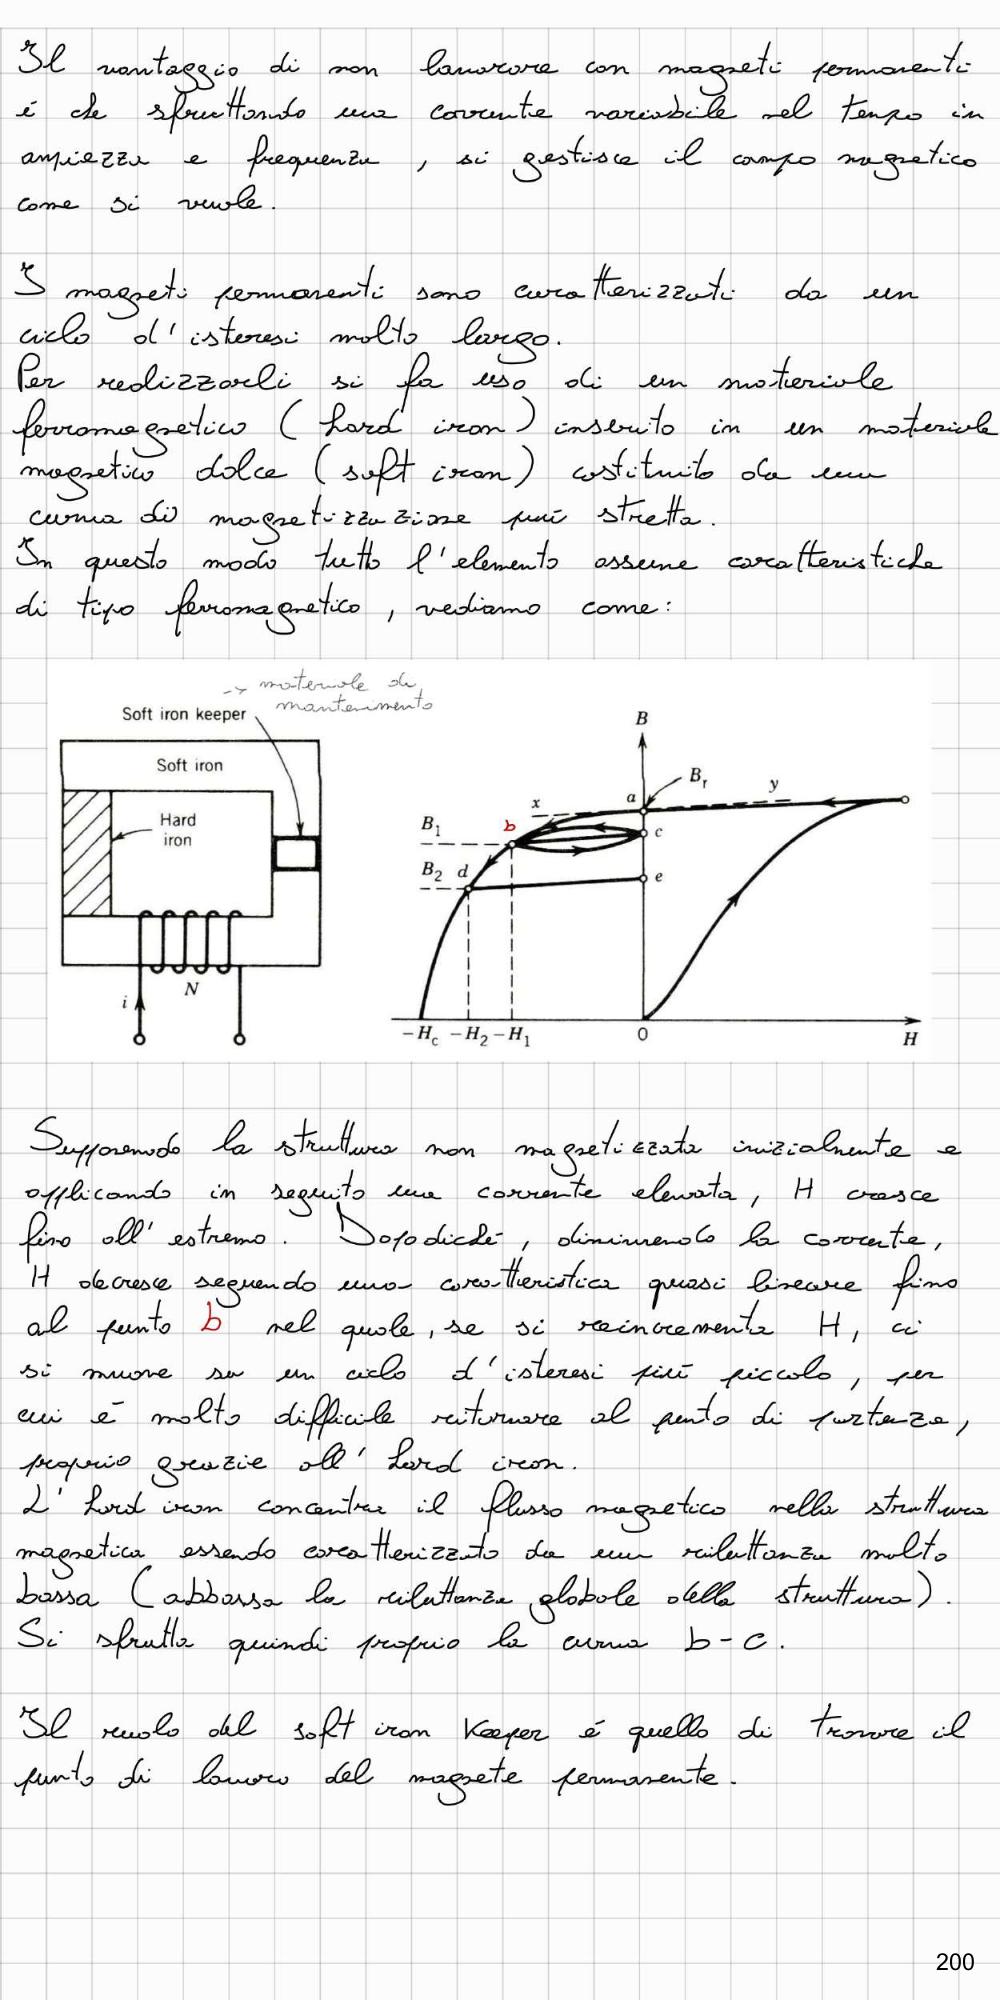 Il vantaggio di non lavorare con magneti permanenti
é che sfruttando una corrente variabile nel tempo in
ampiezza e frequenza, si gestisce il campo magnetico
come si vuole.
I magneti permanenti sono caratterizzati da un
ciclo d'isteresi molto largo.
Per realizzarli si fa uso di un materiale
ferromagnetico (hard iron) inserito in un materiale
magnetico dolce (soft iron) costituito da una
curva di magnetizzazione più stretta.
In questo modo tutto l'elemento assume caratteristiche
di tipo ferromagnetico, vediamo come:
-> materiale di
mantenimento
Soft iron keeper
Soft iron
Hard
iron
i
N
B
B_r
a
y
x
b
B_1
c
B_2
d
e
-H_c
-H_2
-H_1
0
H
Supponendo la struttura non magnetizzata inizialmente e
applicando in seguito una corrente elevata, H cresce
fino all'estremo. Dopodiché, diminuendo la corrente,
H decresce seguendo una caratteristica quasi lineare fino
al punto b nel quale, se si reincrementa H, ci
si muove su un ciclo d'isteresi più piccolo, per
cui é molto difficile ritornare al punto di partenza,
proprio grazie all'hard iron.
L'hard iron concentra il flusso magnetico nella struttura
magnetica essendo caratterizzato da una riluttanza molto
bassa (abbassa la riluttanza globale della struttura).
Si sfrutta quindi proprio la curva b-c.
Il ruolo del soft iron Keeper é quello di trovare il
punto di lavoro del magnete permanente.
200